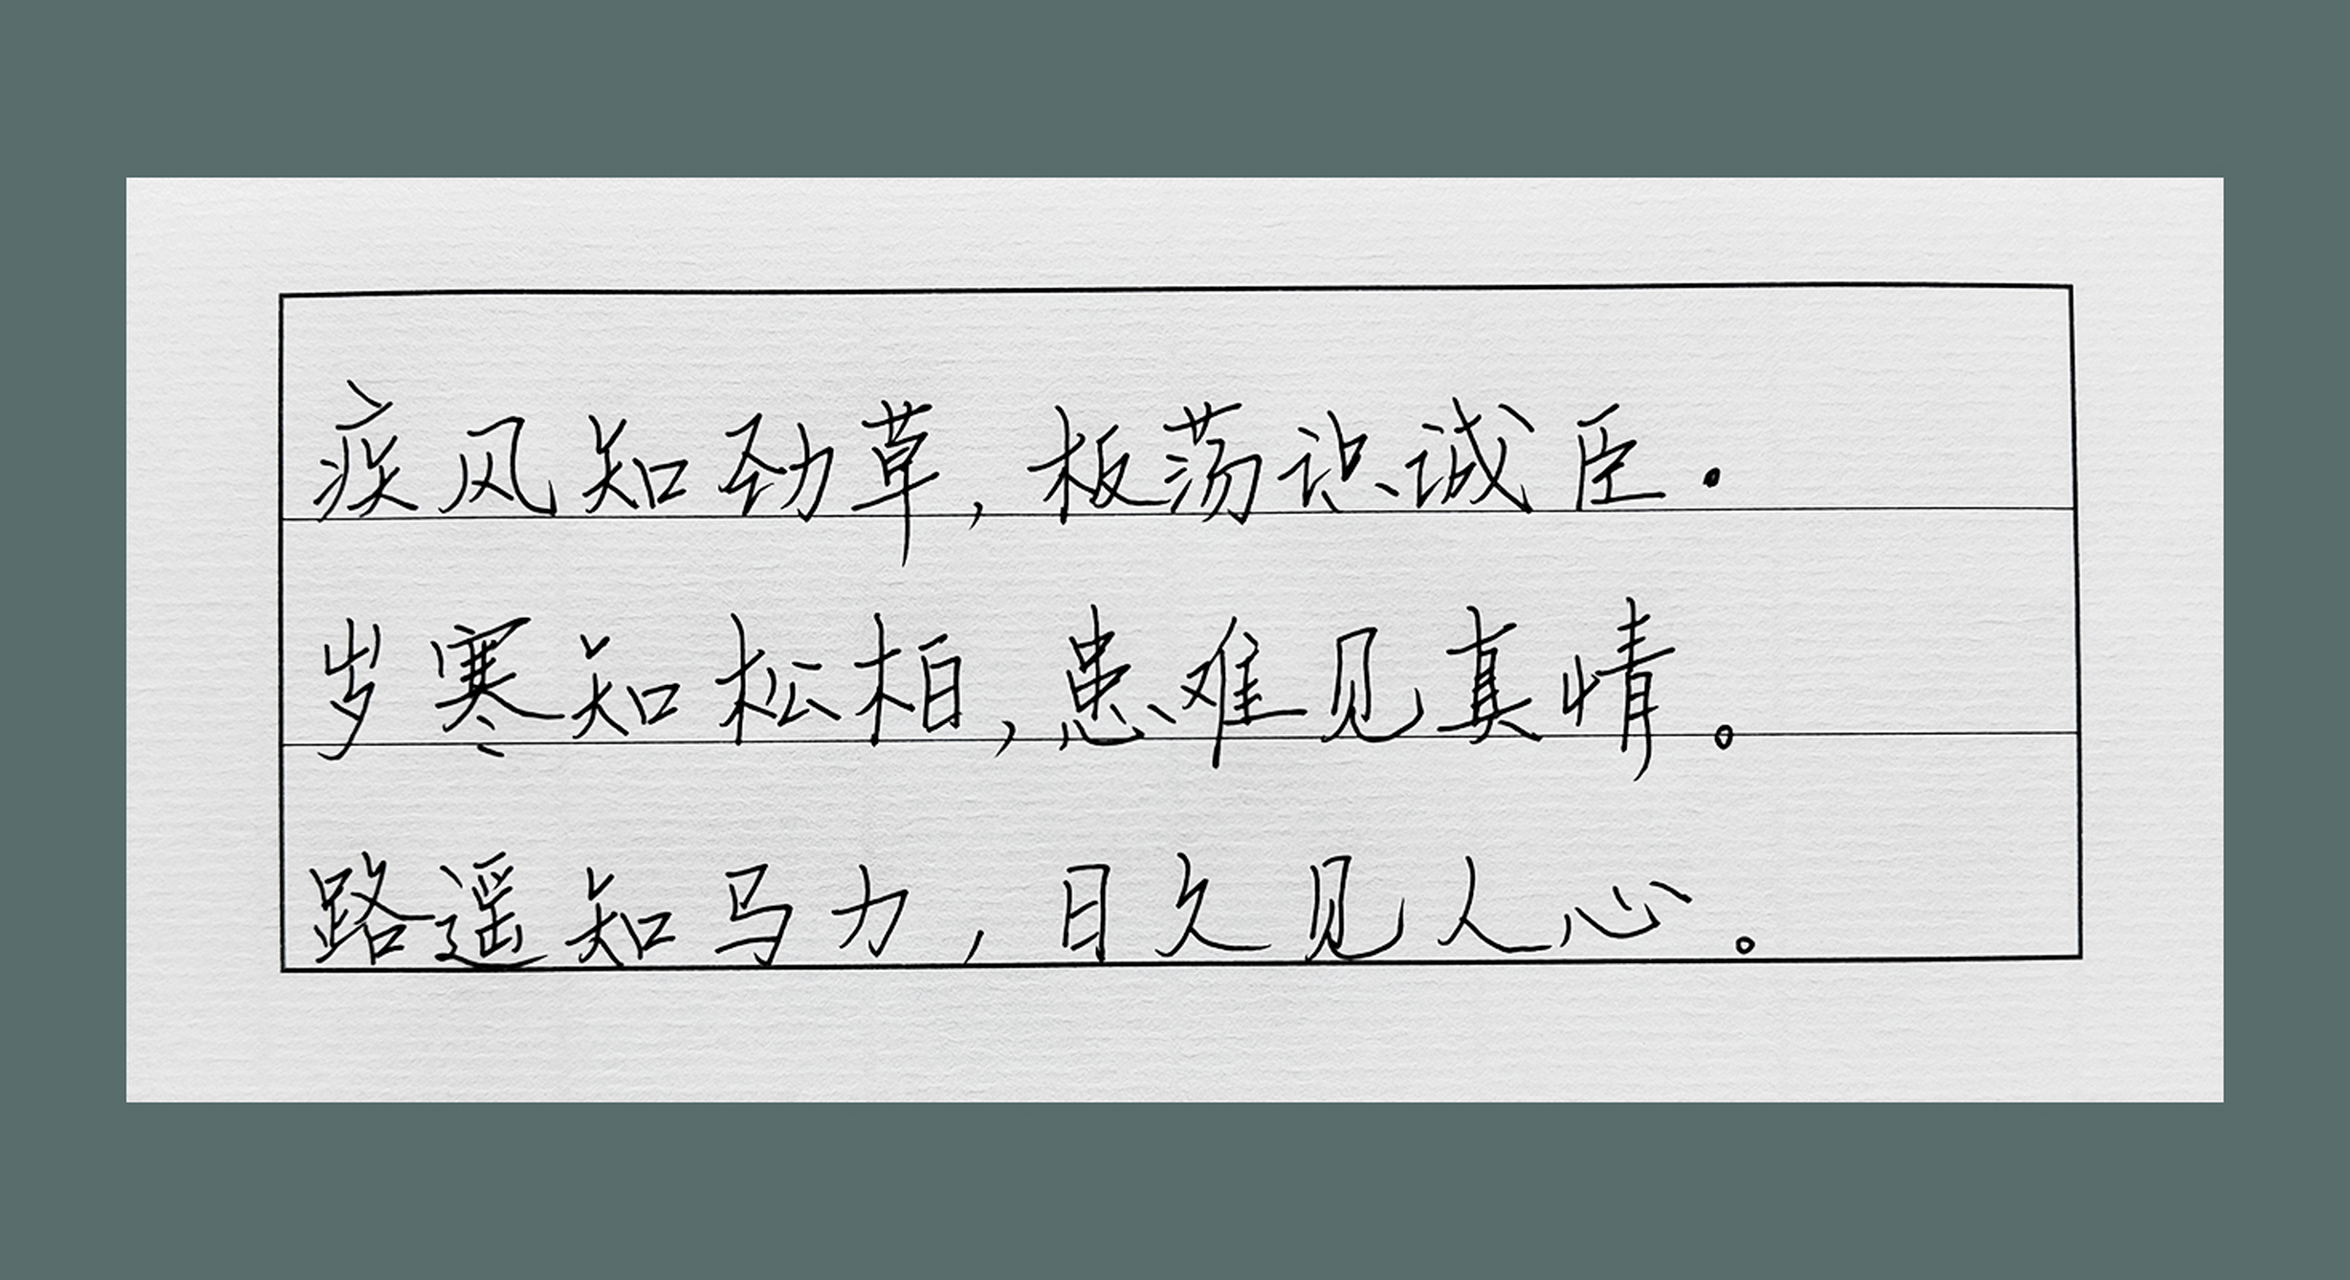 疾风知劲草，板荡识诚臣.
岁寒知松柏，患难见真情。
路遥知马力，日久见人心。